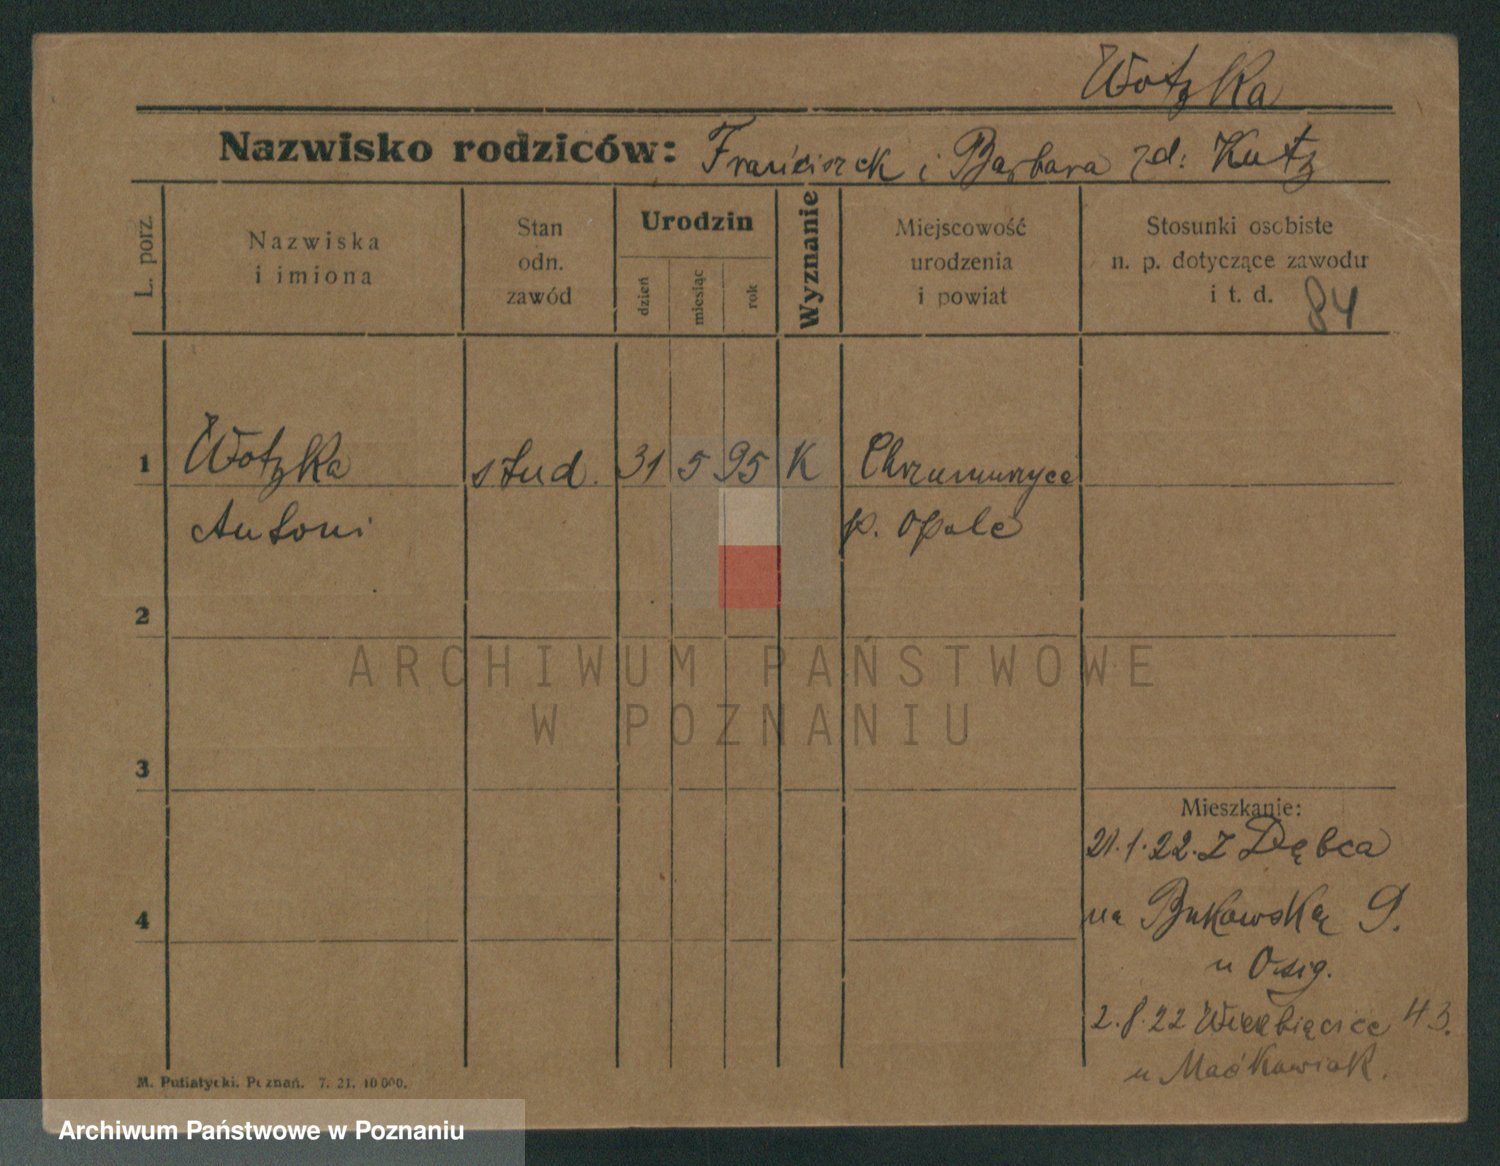 Wotzka
Nazwisko rodziców: Franciszek i Barbara zd: Kutz
L. porz.
Nazwiska
i imiona
Stan
odn.
zawód
Urodzin
dzień
miesiąc
rok
Wyznanie
Miejscowość
urodzenia
i powiat
Stosunki osobiste
n. p. dotyczące zawodu
i t. d.
84
1 Wotzka stud. 31 5 95 K
Antoni p. Opole
2
3
4
Mieszkanie:
21.1.22. z Dębca
na Bukowską 9.
u Osig.
2.8.22 Wierzbięcice 43.
u Maćkowiak.
M. Putiatycki. Poznań. 7. 21. 10 000.
ARCHIWUM PAŃSTWOWE
W POZNANIU
Archiwum Państwowe w Poznaniu